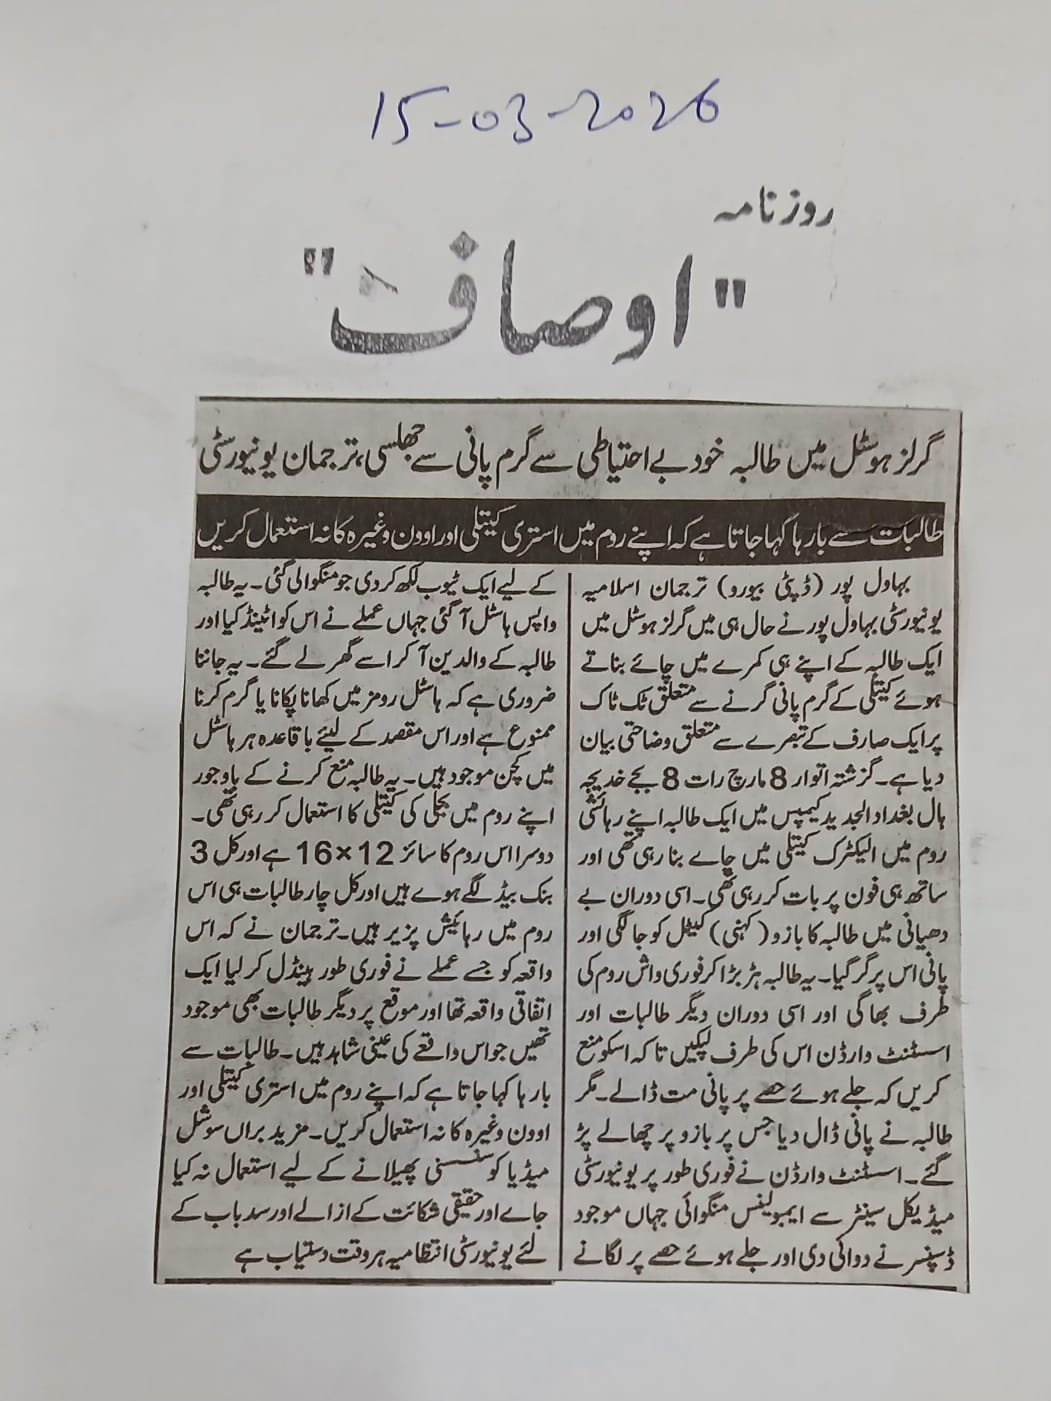 15-03-2026
روزنامہ
"اوصاف"
گرلز ہوسٹل میں طالبہ خود بے احتیاطی سے گرم پانی سے جھلسی، ترجمان یونیورسٹی
طالبات سے بارہا کہا جاتا ہے کہ اپنے روم میں استری کیتلی اور اوون وغیرہ کا نہ استعمال کریں
بہاول پور (ڈپٹی بیورو) ترجمان اسلامیہ
یونیورسٹی بہاول پور نے حال ہی میں گرلز ہوسٹل میں
ایک طالبہ کے اپنے ہی کمرے میں چائے بناتے
ہوئے کیتلی کے گرم پانی گرنے سے متعلق ٹک ٹاک
پر ایک صارف کے تبصرے سے متعلق وضاحتی بیان
دیا ہے۔ گزشتہ اتوار 8 مارچ رات 8 بجے خدیجہ
ہال بغداد الجدید کیمپس میں ایک طالبہ اپنے رہائشی
روم میں الیکٹرک کیتلی میں چاے بنا رہی تھی اور
ساتھ ہی فون پر بات کر رہی تھی۔ اسی دوران بے
دھیانی میں طالبہ کا بازو (کہنی) کیٹل کو جا لگی اور
پانی اس پر گر گیا۔ یہ طالبہ ہڑبڑا کر فوری واش روم کی
طرف بھاگی اور اسی دوران دیگر طالبات اور
اسسٹنٹ وارڈن اس کی طرف لپکیں تاکہ اسکو منع
کریں کہ جلے ہوئے حصے پر پانی مت ڈالے۔ مگر
طالبہ نے پانی ڈال دیا جس پر بازو پر چھالے پڑ
گئے۔ اسسٹنٹ وارڈن نے فوری طور پر یونیورسٹی
میڈیکل سینٹر سے ایمبولینس منگوائی جہاں موجود
ڈسپنسر نے دوائی دی اور جلے ہوئے حصے پر لگانے
کے لیے ایک ٹیوب لکھ کر دی جو منگوالی گئی۔ یہ طالبہ
واپس ہاسٹل آ گئی جہاں عملے نے اس کو اٹینڈ کیا اور
طالبہ کے والدین آ کر اسے گھر لے گئے۔ یہ جاننا
ضروری ہے کہ ہاسٹل رومز میں کھانا پکانا یا گرم کرنا
ممنوع ہے اور اس مقصد کے لیئے باقاعدہ ہر ہاسٹل
میں کچن موجود ہیں۔ یہ طالبہ منع کرنے کے باوجور
اپنے روم میں بجلی کی کیتلی کا استعمال کر رہی تھی۔
دوسرا اس روم کا سائز 12×16 ہے اور کل 3
بنک بیڈ لگے ہوے ہیں اور کل چار طالبات ہی اس
روم میں رہائیش پزیر ہیں۔ ترجمان نے کہ اس
واقعہ کو جسے عملے نے فوری طور ہینڈل کر لیا ایک
اتفاقی واقعہ تھا اور موقع پر دیگر طالبات بھی موجود
تھیں جو اس واقعے کی عینی شاہد ہیں۔ طالبات سے
بارہا کہا جاتا ہے کہ اپنے روم میں استری کیتلی اور
اوون وغیرہ کا نہ استعمال کریں۔ مزید براں سوشل
میڈیا کو سنسنی پھیلانے کے لیے استعمال نہ کیا
جاے اور حقیقی شکائت کے ازالے اور سدباب کے
لئے یونیورسٹی انتظامیہ ہر وقت دستیاب ہے